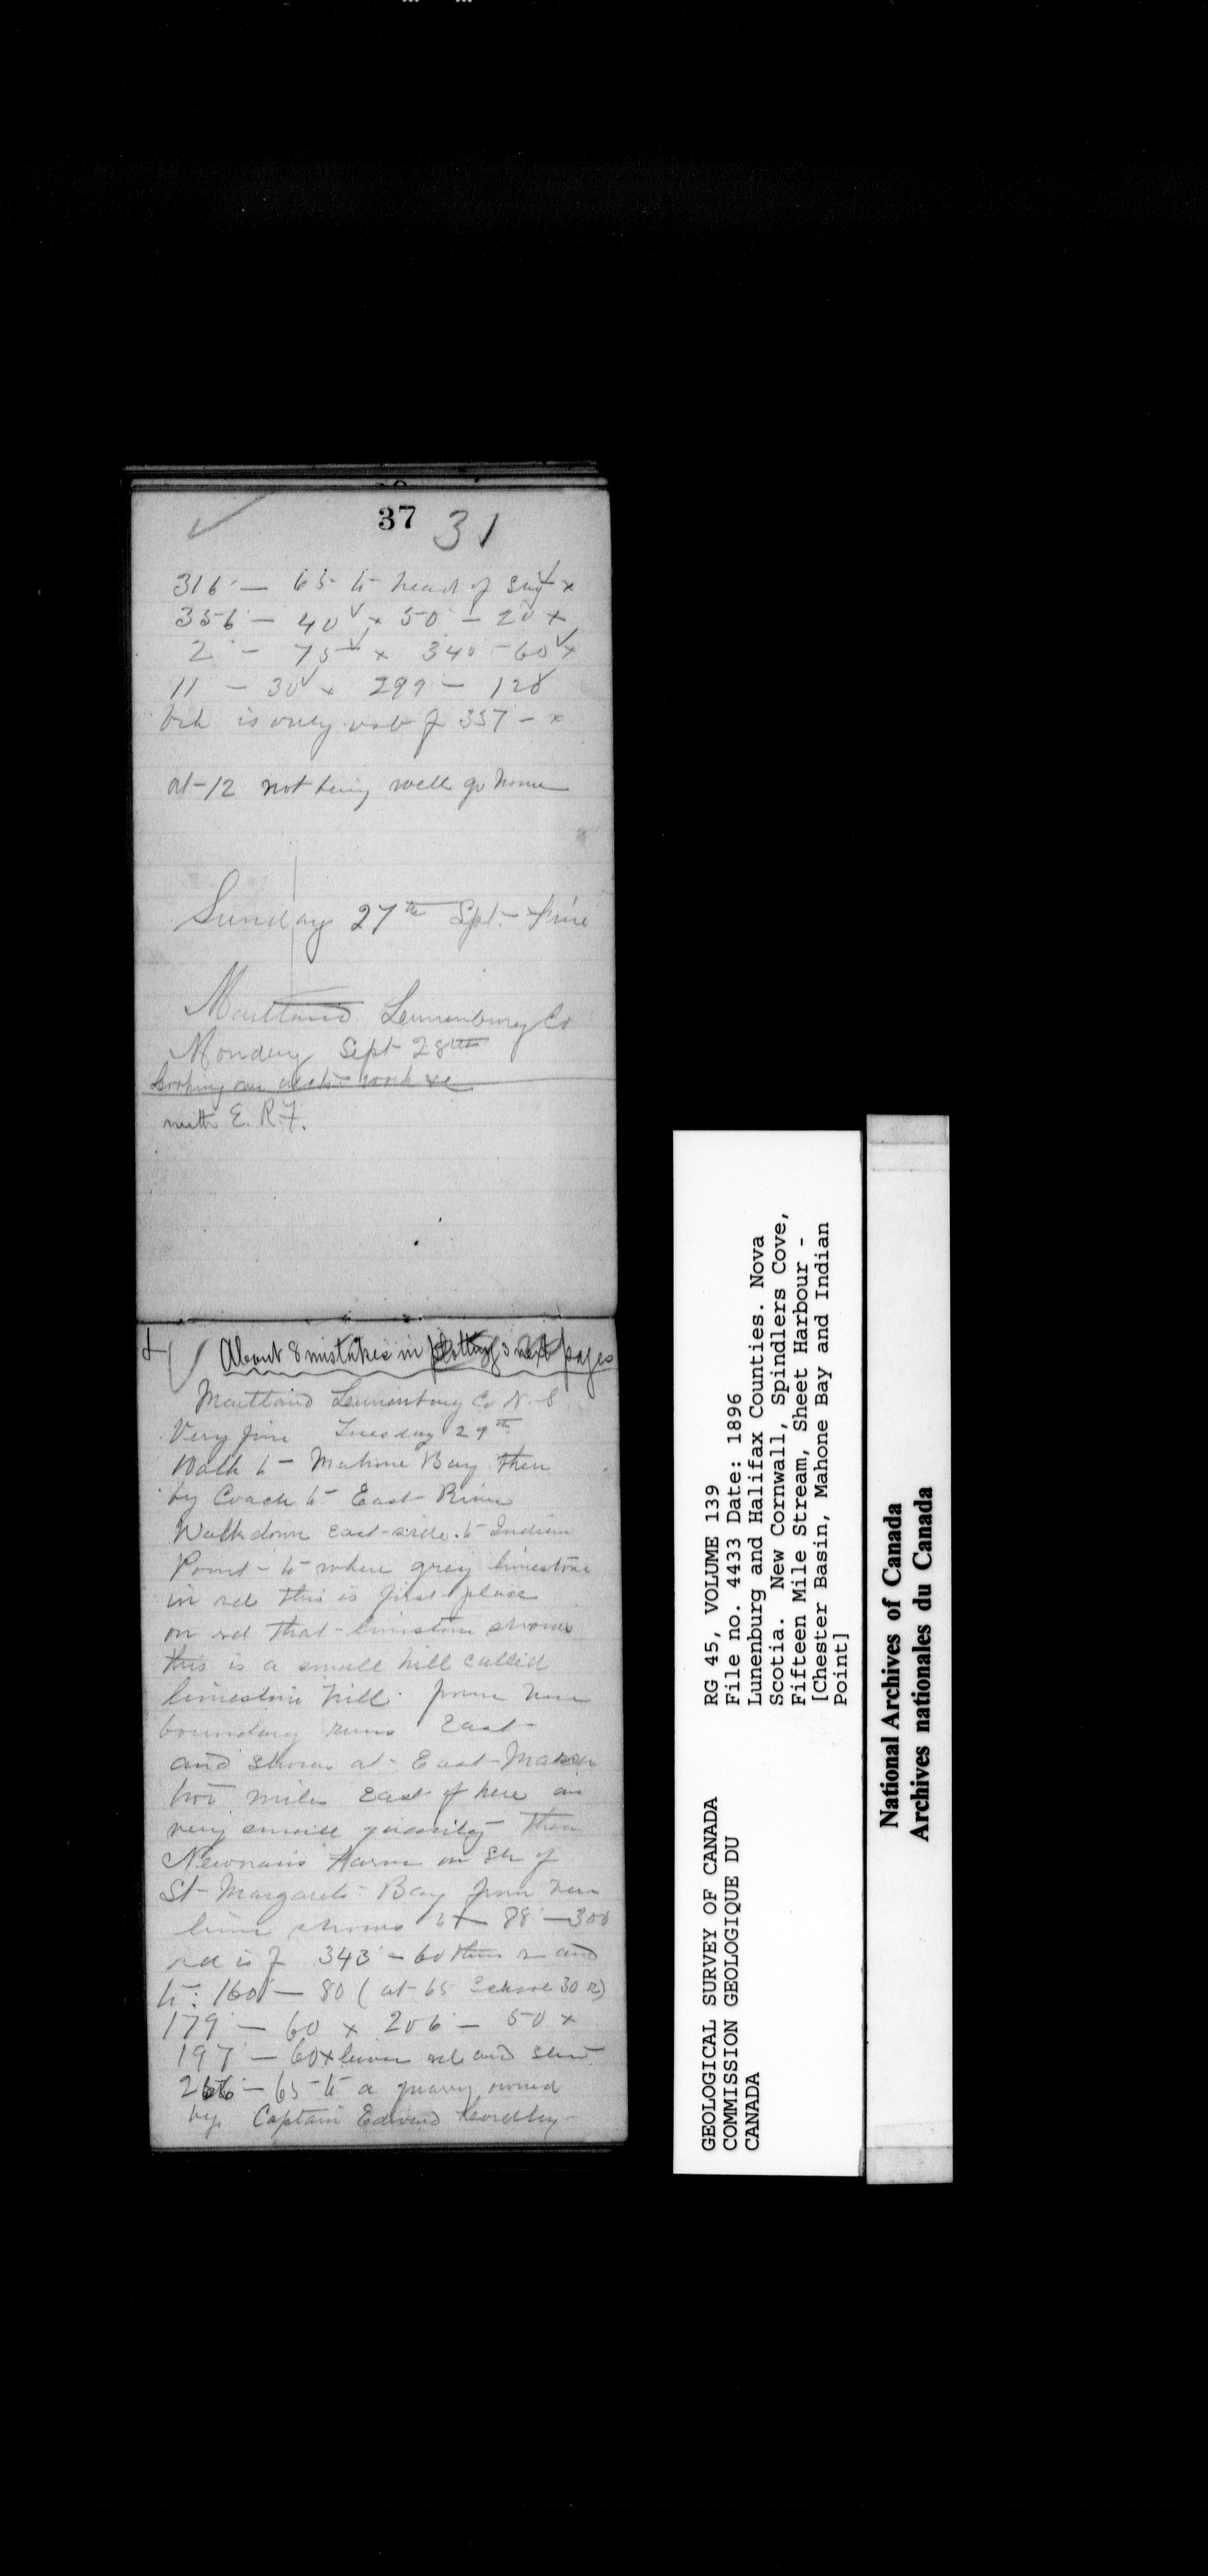 37 31
316° — 65 to head of
356 — 40 x 50 — 20 x
2 — 75 x 340 — 60 x
11 — 30 x 299 — 120
brk is only f 357 — x
at 12 not being well go home
Sunday 27th Spt. Fine
Maitland Lunenburg Co
Monday Sept 28th
Looking over work &c
with E. R. F.
About 8 mistakes in plotting 3 next pages
Maitland Lunenburg Co N. S
Very fine Tuesday 29th
Walk to Mahone Bay then
by Coach to East River
Walk down east side to Indian
Point to where grey limestone
in rd this is first place
on rd that limestone shows
this is a small hill called
limestone hill from here
boundary runs East
and shows at East
two miles East of here in
very small quantity then
Farm on Sh of
St Margarets Bay from here
lime shows to 88 — 300
rd is f 343 — 60 then and
to: 160 — 80 (at 65 30 R)
179 — 60 x 206 — 50 x
197 — 60 x leave rd and
266 — 65 to a quarry owned
by Captain Edward
GEOLOGICAL SURVEY OF CANADA
COMMISSION GEOLOGIQUE DU
CANADA
RG 45, VOLUME 139
File no. 4433 Date: 1896
Lunenburg and Halifax Counties. Nova
Scotia. New Cornwall, Spindlers Cove,
Fifteen Mile Stream, Sheet Harbour -
[Chester Basin, Mahone Bay and Indian
Point]
National Archives of Canada
Archives nationales du Canada